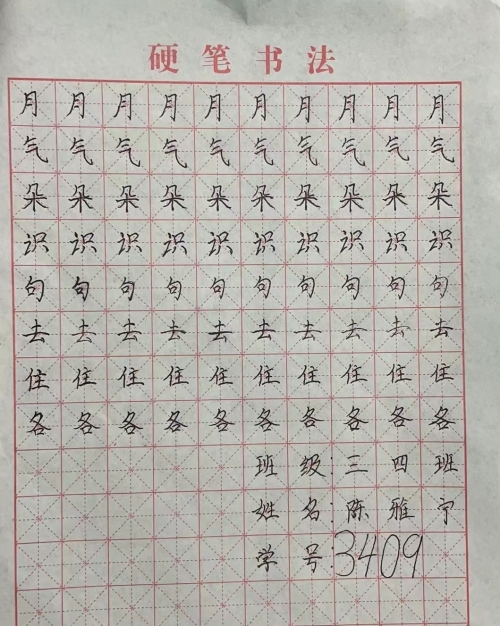 硬笔书法
月月月月月月月月月月
气气气气气气气气气气
朵朵朵朵朵朵朵朵朵朵
识识识识识识识识识识
句句句句句句句句句句
去去去去去去去去去去
住住住住住住住住住住
各各各各各各各各各各
班级:三四班
姓名:陈雅宁
学号:3409